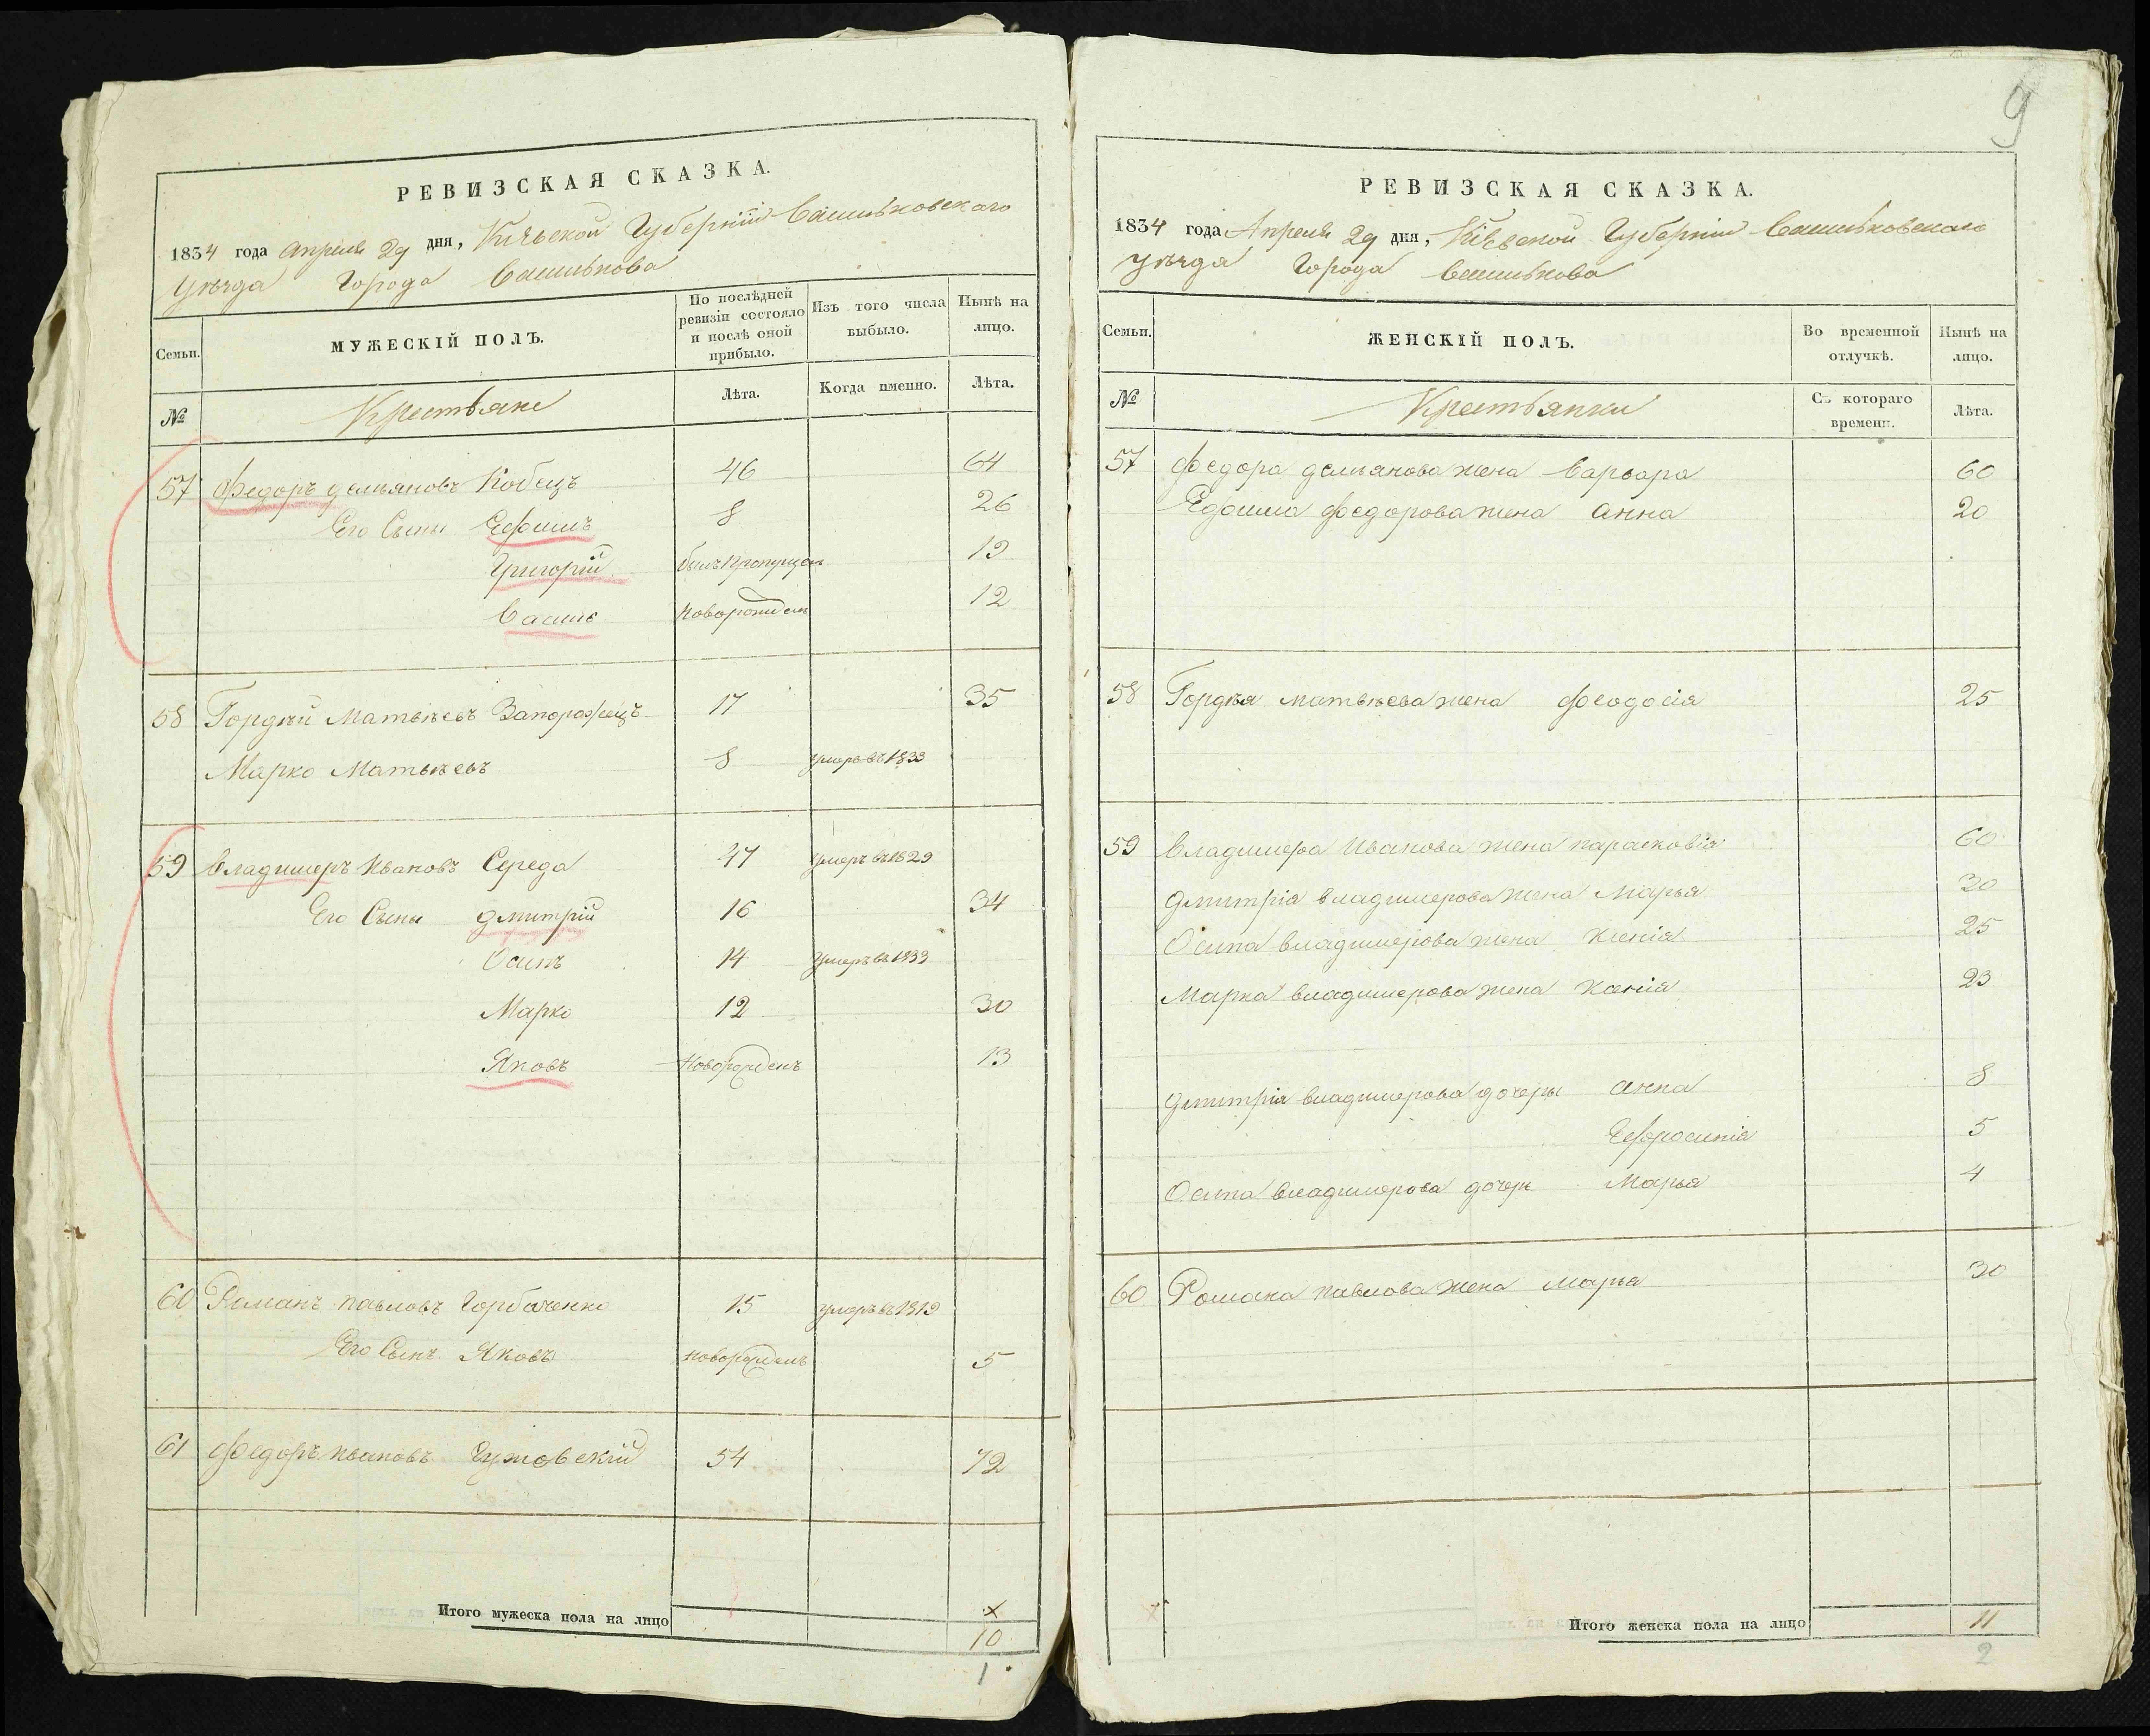 РЕВИЗСКАЯ СКАЗКА.
1834 года Апреля 29 дня, Кіевской Губерніи Васильковскаго
Уѣзда Города Василькова
Семьи.
МУЖЕСКІЙ ПОЛЪ.
По послѣдней ревизіи состояло и послѣ оной прибыло.
Изъ того числа выбыло.
Нынѣ на лицо.
№
Крестьяне
Лѣта.
Когда именно.
Лѣта.
57 Федоръ демьяновъ Кобецъ 46 64
Его Сыны Ефимъ 8 26
Григорій былъ пропущен 19
Василь Новорожден 12
58 Гордѣй Матвѣевъ Запорожецъ 17 35
Марко Матвѣевъ 8 умеръ въ 1833
59 Владимеръ Ивановъ Середа 47 умеръ въ 1829
Его Сыны дмитрій 16 34
Осипъ 14 умеръ въ 1833
Марко 12 30
Яковъ Новорожденъ 13
60 Романъ павловъ Горбаченко 15 умеръ въ 1819
Его Сынъ Яковъ Новорожденъ 5
61 Федоръ Ивановъ 54 72
Итого мужеска пола на лицо
х
10
1
9
РЕВИЗСКАЯ СКАЗКА.
1834 года Апреля 29 дня, Кіевской Губерніи Васильковскаго
Уѣзда Города Василькова
Семьи.
ЖЕНСКІЙ ПОЛЪ.
Во временной отлучкѣ.
Нынѣ на лицо.
№
Крестьянки
Съ котораго времени.
Лѣта.
57 Федора демьянова жена Варвара 60
Ефима Федорова жена Анна 20
58 Гордѣя матвѣева жена Феодосія 25
59 Владимера Иванова жена парасковія 60
дмитрія владимерова жена Марья 30
Осипа владимерова жена Ксенія 25
Марка владимерова жена Ксенія 23
дмитрія владимерова дочеры Анна 8
Ефросинія 5
Осипа владимерова дочерь Марья 4
60 Романа павлова жена марья 30
Итого женска пола на лицо 11
2